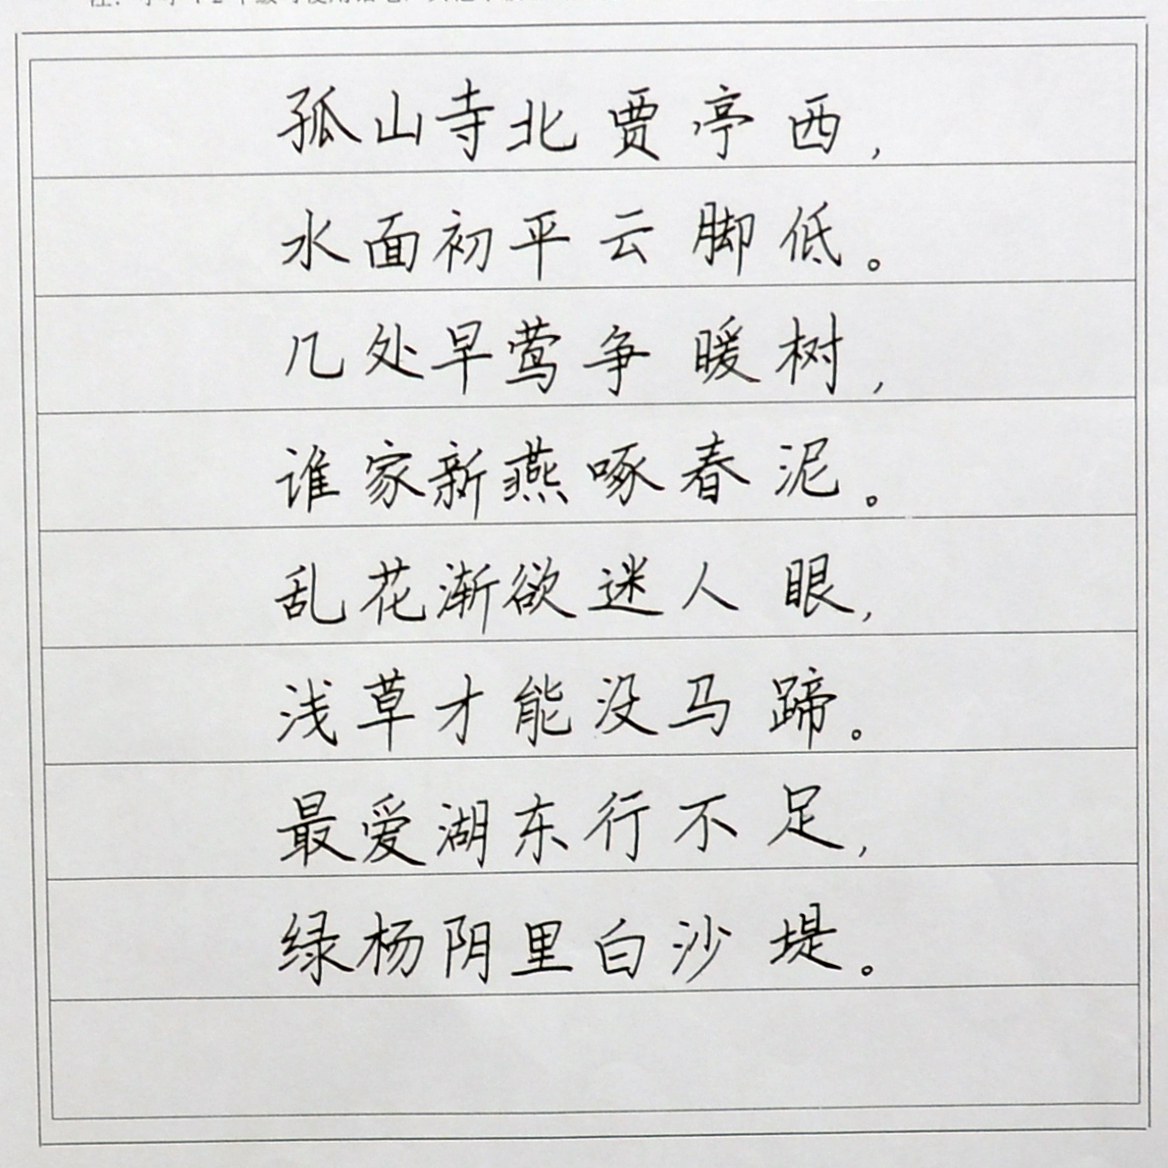 孤山寺北贾亭西，
水面初平云脚低。
几处早莺争暖树，
谁家新燕啄春泥。
乱花渐欲迷人眼，
浅草才能没马蹄。
最爱湖东行不足，
绿杨阴里白沙堤。